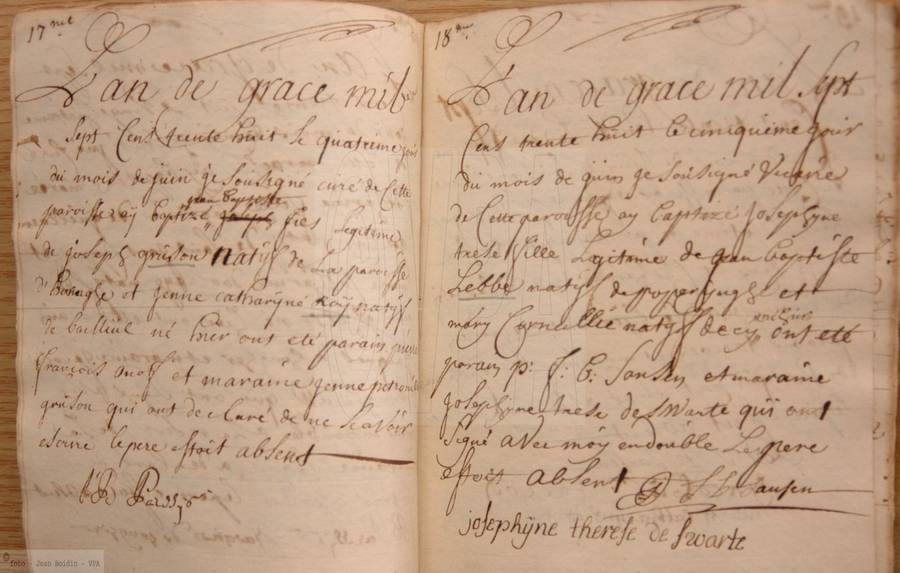 17me
L'an de grace mil
Sept Cent trente huit le quatrieme jour
du mois de juin je Sousigné curé de Cette
jean baptiste
paroisse aÿ baptizé Joseph fies Legitime
de joseph gruson natif de La paroisse
et jenne catharÿne natif
de bailliul né hier ont eté parain
François et maraine jenne
gruson qui ont declaré de ne scavoir
escrire le pere estoit absent
18me
L'an de grace mil Sept
Cent trente huit le cinquieme jour
du mois de juin je Sousigné Vicaire
de Cette paroisse ay baptizé Josephÿne
trese fille Legitime de jean baptiste
Lebbe natif de poperinghe et
marÿ Cornellie natif decy ont eté
parain p: f: b: Jansen et maraine
Josephÿne trese de Swarte qui ont
Signé avec moÿ en double Le pere
estoit absent Jansen
josephÿne therese de Swarte
© foto - Jean Boidin - VPA